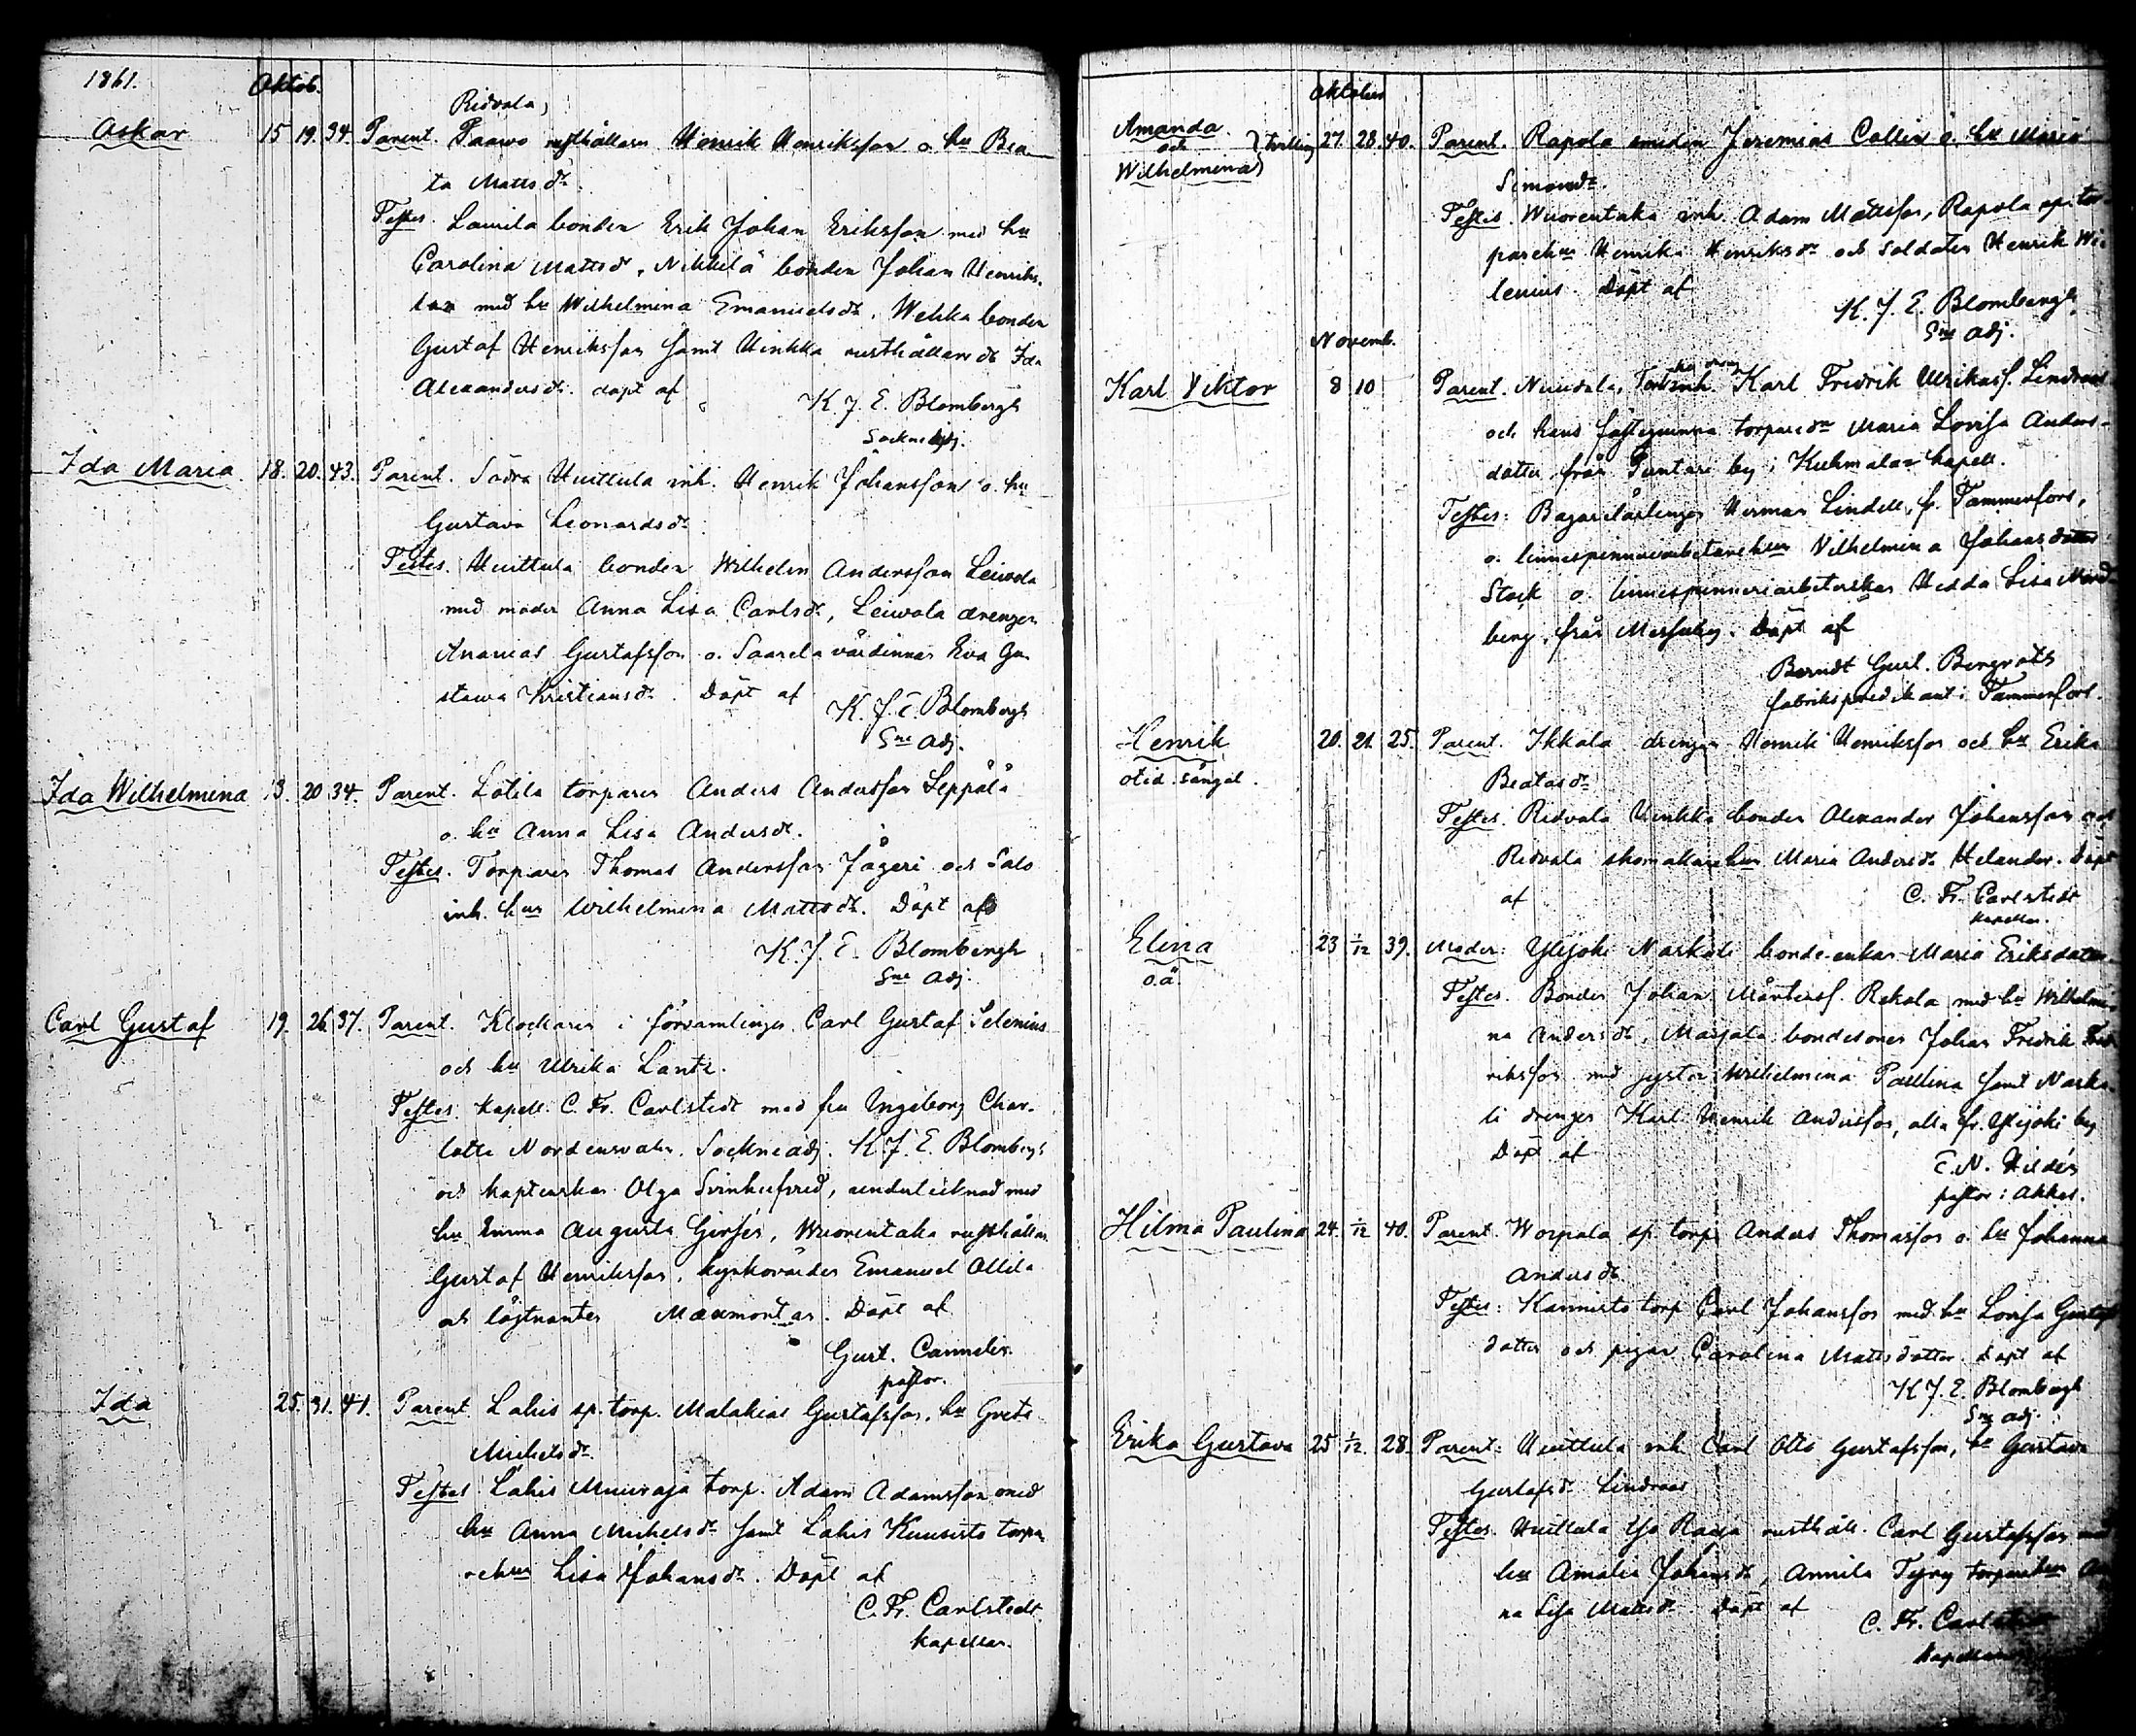 1861. Oktob.
Ridvala,
Oskar 15 19. 34. Parent. Paawo rusthållaren Henrik Henriksson o. hu Bea-
ta Matts dr.
Testes. Laurila bonden Erik Johan Eriksson med hu
Carolina Mattsdr, Nikkilä bonden Johan Henriks.
son med hu Wilhelmina Emanuelsdr. Wehka bonden
Gustaf Henriksson samt Hinkka rusthållaredr Ida
Alexandersdr. döpt af
K. J. E. Blombergh
Sockneadj.
Ida Maria 18. 20. 43. Parent. Södra Huittula inh. Henrik Johansson o. hu
Gustava Leonardsdr.
Testes. Huittula bonden Wilhelm Andersson Leiwola
med moder Anna Lisa Carlsdr, Leiwola drengen
Ananias Gustafsson o. Saarela värdinnan Eva Gu-
stawa Kristiansdr. Döpt af
K. J. E. Blombergh
Sne Adj.
Ida Wilhelmina 13. 20 34. Parent. Lotila torparen Anders Andersson Seppälä
o. hu Anna Lisa Andersdr.
Testes. Torparen Thomas Andersson Jågeri och Salo
inh. hun Wilhelmina Mattsdr. Döpt af
K. J. E. Blombergh
Sne Adj.
Carl Gustaf 19. 26. 37. Parent. Klockaren i församlingen Carl Gustaf Selenius
och hu Ulrika Lantz.
Testes. Kapell. C. Fr. Carlstedt med fru Ingeborg Char-
lotta Nordenswan. Sockneadj. K. J. E. Blombergh
och kaptenskan Olga Svinhufvud, underlieutnad med
hu Emma Augusta Girsén, Wuorentaka rusthållar.
Gustaf Henriksson, kyrkovärden Emanuel Ollila
och löjtnanten Maxmontan. Döpt af
Gust. Cannelin
pastor.
Ida 25. 31. 41. Parent. Lahis sp. torp. Malakias Gustafsson, hu Greta
Michelsdr.
Testes. Lahis Muuraja torp. Adam Adamsson med
hu Anna Michelsdr samt Lahis Kuusisto torpa-
rehun Lisa Johansdr. Döpt af
C. Fr. Carlstedt
Kapellan.
Oktober
Amanda
och
Wilhelmina} tvilling 27. 28. 40. Parent. Rapola smeden Jeremias Collin o. hu Maria
Simonsdr.
Testes. Wuorentaka inh. Adam Mattsson, Rapola sp. tor-
parehun Henrika Henriksdr och Soldaten Henrik Wi-
lenius. Döpt af
K. J. E. Blombergh
Sne adj.
Novemb.
Karl Viktor 8 10 Parent. Karl Fredrik Ulrikas. Lindroos
och hans fästeqvinna torparedr Maria Lovisa Anders-
dotter från Puntari by i Kuhmalax kapell.
Testes: Bagarelärlingen Herman Lindell, fr. Tammerfors,
o. linnespinneriarbetarehun Vilhelmina Johansdotter
Stock o. linnespinneriarbeterskan Hedda Lisa Nord-
berg, från Messuby. Döpt af
Berndt Gust. Bergroth
fabrikspredikant i Tammerfors.
Henrik 20. 21. 25. Parent. Ikkala drengen Henrik Henriksson och hu Erika
otid. sängal. Beatasdr
Testes. Ridvala Hinkka bonden Alexander Johansson och
Ridvala skomakarehun Maria Andersdr Helander. Döpt
af C. Fr. Carlstedt
Kapellan.
Elina 23 1/12 39. Moder: Ylijoki Naskali bonde-enkan Maria Eriksdotter
o.ä.
Testes. Bonden Johan Mårtenss. Rekola med hu Wilhelmi-
na Andersdr, Marjala bondesonen Johan Fredrik Fred-
riksson med syster Wilhelmina Paulina samt Naska-
li drengen Karl Henrik Andersson, alla fr. Ylijoki by
Döpt af
E. N. Hildén
pastor i Akkas.
Hilma Paulina 24. 1/12 40. Parent. Worpala sp. torp. Anders Thomasson o. hu Johanna
Andersdr.
Testes: Kannisto torp Carl Johansson med hu Lovisa Gustafs
dotter och pigan Carolina Mattsdotter. Döpt af
K. J. E. Blombergh
Sne adj.
Erika Gustava 25 1/12. 28. Parent: Huittula inh Carl Otto Gustafsson, hu Gustava
Gustafsdr Lindroos
Testes. Huittula Yso Raaja rusthåll. Carl Gustafsson med
hu Amalia Johansdr, Annila Tyry torparehun An
na Lisa Mattsdr. Döpt af
C. Fr. Carlstedt
Kapellan